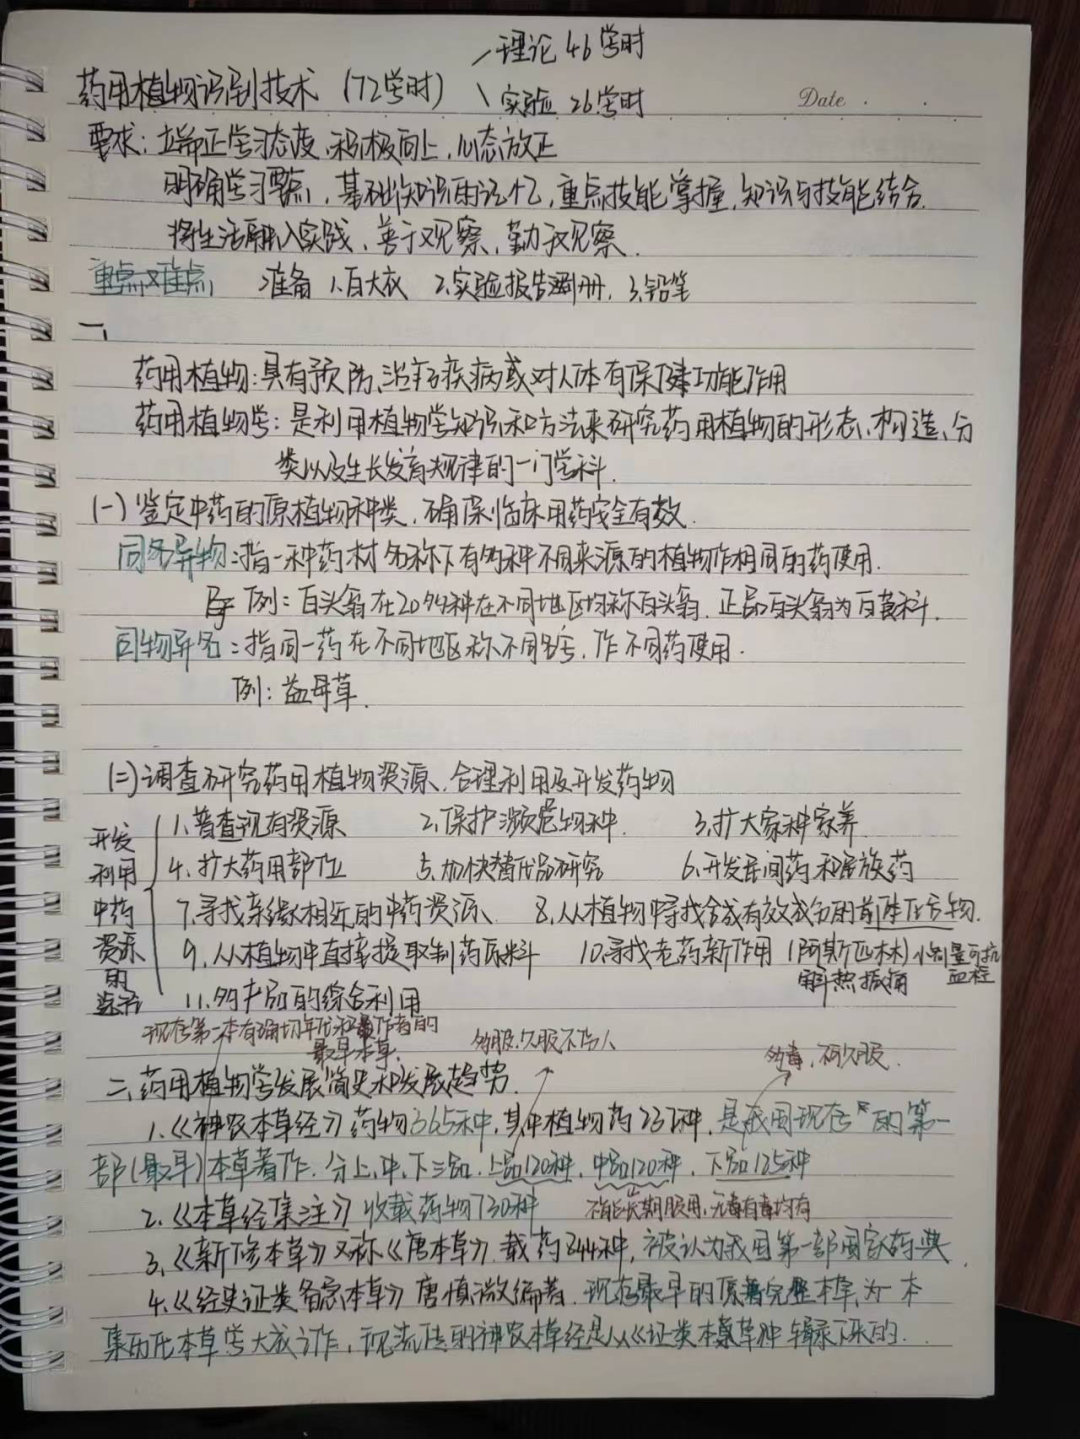 理论 46学时
药用植物识别技术 (72学时)
实验 26学时
Date
要求: 端正学习态度、积极向上、心态放正
明确学习要点, 基础知识的记忆, 重点技能掌握, 知识与技能结合.
将生活融入实践, 善于观察, 勤于观察.
重点难点 准备 1.白大衣 2.实验报告册, 3.铅笔
一、
药用植物:具有预防、治疗疾病或对人体有保健功能作用
药用植物学: 是利用植物学知识和方法来研究药用植物的形态、构造、分
类以及生长发育规律的一门学科.
(一) 鉴定中药的原植物种类, 确保临床用药安全有效.
同名异物:指一种药材名称下有多种不同来源的植物作相同的药使用.
例: 白头翁在20多种在不同地区均称白头翁. 正品白头翁为
同物异名:指同一药在不同地区称不同名字, 作不同药使用.
例: 益母草.
(二)调查研究药用植物资源、合理利用及开发药物
开发利用中药资源的途径
1.普查现有资源 2.保护濒危物种. 3.扩大家种家养
4.扩大药用部位 5.加快替代品研究 6.开发民间药和民族药
7.寻找亲缘相近的中药资源、 8.从植物中寻找合成有效成分的前体化合物.
9.从植物中直接提取制药原料 10.寻找老药新作用 (阿斯匹林) 小剂量可抗血栓
解热振痛
11.多产品的综合利用
现存第一本有确切年代和作者的
最早本草. 多服、久服不伤人 多毒, 不可久服.
二、药用植物学发展简史和发展趋势.
1.《神农本草经》药物365种, 其中植物药237种, 是我国现存的第一
部(最早)本草著作. 分上、中、下三品. 上品120种, 中品120种, 下品125种
2.《本草经集注》收载药物730种 不能长期服用, 无毒有毒均有
3.《新修本草》又称《唐本草》. 载药844种, 被认为我国第一部国家药典
4.《经史证类备急本草》唐慎微编著. 现存最早的原著完整本草, 为一本
集历代本草学大成之作, 现流传的神农本草经是从《证类本草》中辑录下来的.